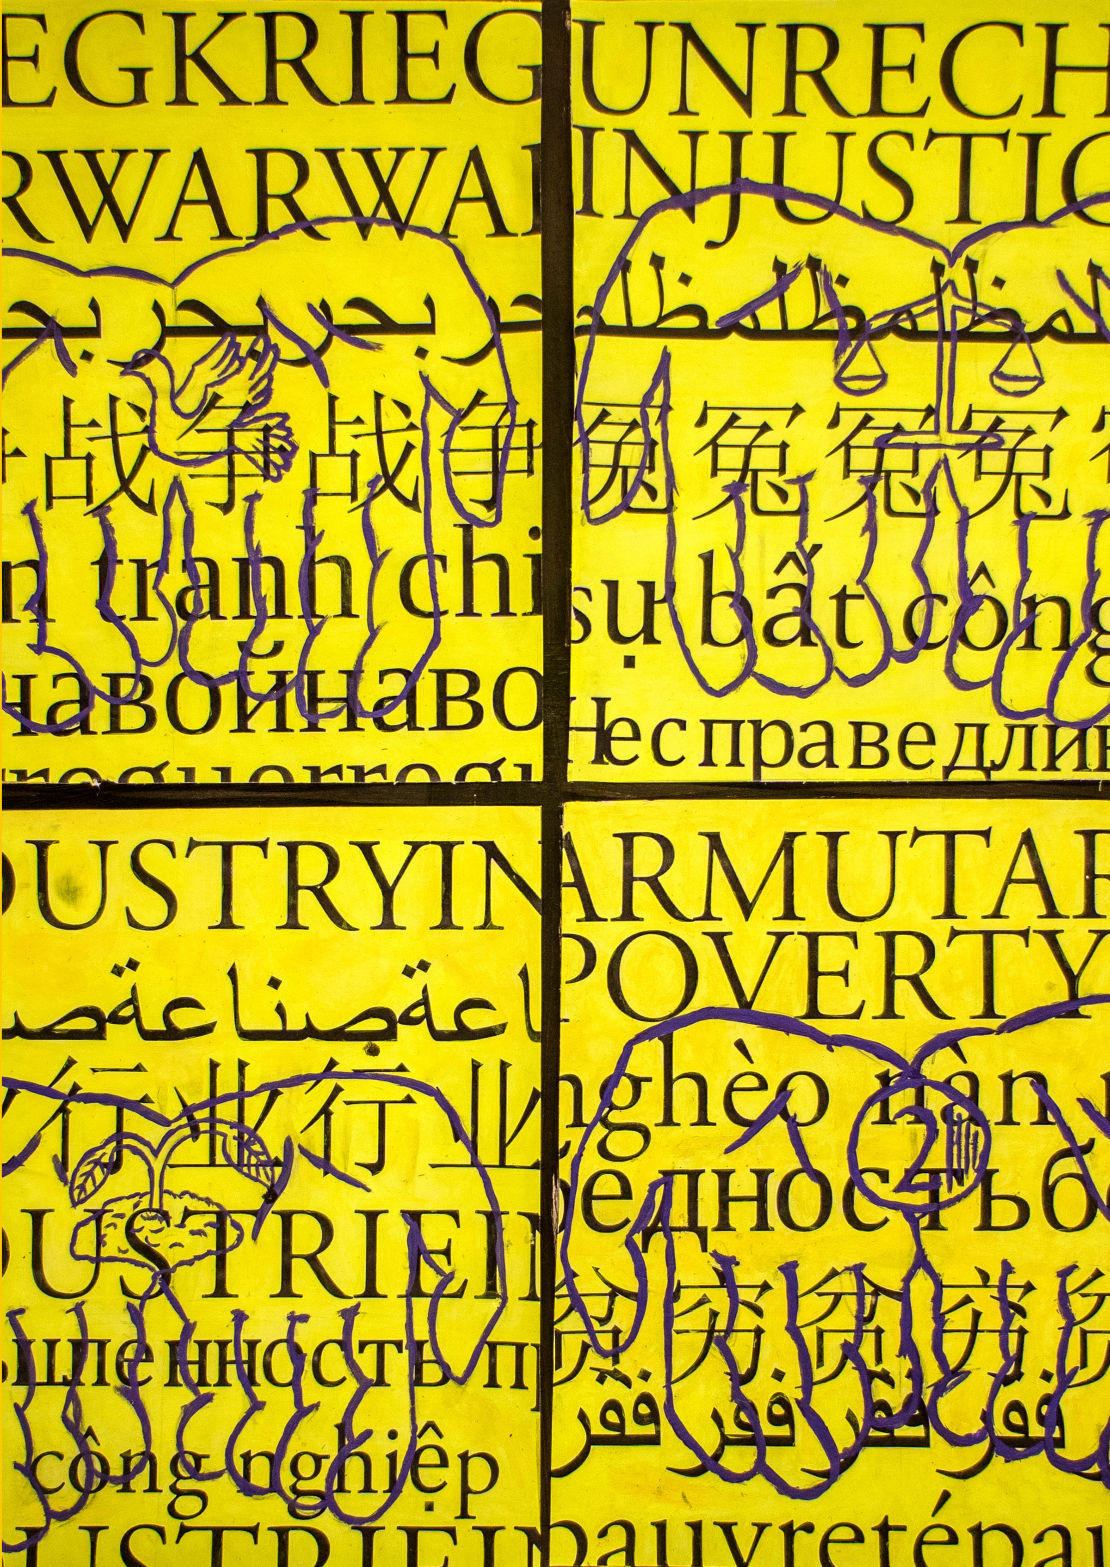 EGKRIEG
RWARWA
حرب حرب حر
战争战争
n tranh chi
навойнаво
reguerregu
UNRECH
INJUSTIC
ظلمظلمظلم
冤冤冤冤
sự bất công
Несправедлив
DUSTRYIN
صناعة صناعة
行业行业
DUSTRIEIN
шленность п
công nghiệp
DUSTRIEIN
ARMUTAR
POVERTY
nghèo nàn
едностьб
贫穷贫穷贫
فقر فقر فقر فقر
pauvretépau